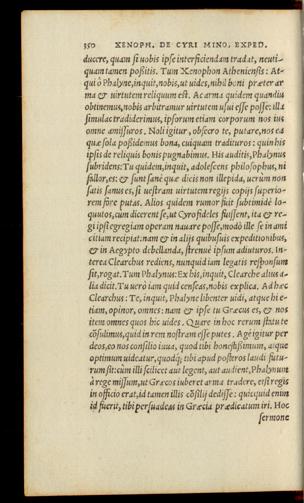 350 XENOPH. DE CYRI MINO. EXPED.
ducere, quam si uobis ipse interficiendam tradat, neuti-
quam tamen poßitis. Tum Xenophon Atheniensis: At-
qui ô Phalyne, inquit, nobis, ut uides, nihil boni præter ar
ma & uirtutem reliquum est. Ac arma quidem quandiu
obtinemus, nobis arbitramur uirtutem usui esse posse: illa
simulac tradiderimus, ipsorum etiam corporum nos ius
omne amissuros. Noli igitur, obsecro te, putare, nos ea
quæ sola poßidemus bona, cuiquam tradituros: quin his
ipsis de reliquis bonis pugnabimus. His auditis, Phalynus
subridens: Tu quidem, inquit, adolescens philosophus, ni
fallor, es: & sunt sanè quæ dicis non illepida, uerùm non
satis sanus es, si uestram uirtutem regis copijs superio-
rem fore putas. Alios quidem rumor fuit subtimidè lo-
quutos, cùm dicerent se, ut Cyro fideles fuissent, ita & re-
gi ipsi egregiam operam nauare posse, modò ille se in ami
citiam recipiat: nam & in alijs quibusuis expeditionibus,
& in Aegypto debellanda, strenuè ipsum adiuturos. In-
terea Clearchus rediens, nunquid iam legatis responsum
sit, rogat. Tum Phalynus: Ex his, inquit, Clearche alius a-
lia dicit. Tu uerò iam quid censeas, nobis explica. Ad hæc
Clearchus: Te, inquit, Phalyne libenter uidi, atque hi e-
tiam, opinor, omnes: nam & ipse tu Græcus es, & nos
item omnes quos hic uides. Quare in hoc rerum statu te
cõsulimus, quid in rem nostram esse putes. Age igitur per
deos, eo nos consilio iuua, quod tibi honestißimum, atque
optimum uideatur, quodq; tibi apud posteros laudi futu-
rum sit: cùm illi scilicet aut legent, aut audient, Phalynum
à rege missum, ut Græcos iuberet arma tradere, etsi regis
in officio erat, id tamen illis cõsilij dedisse: quicquid enim
id fuerit, tibi persuadeas in Græcia prædicatum iri. Hoc
sermone